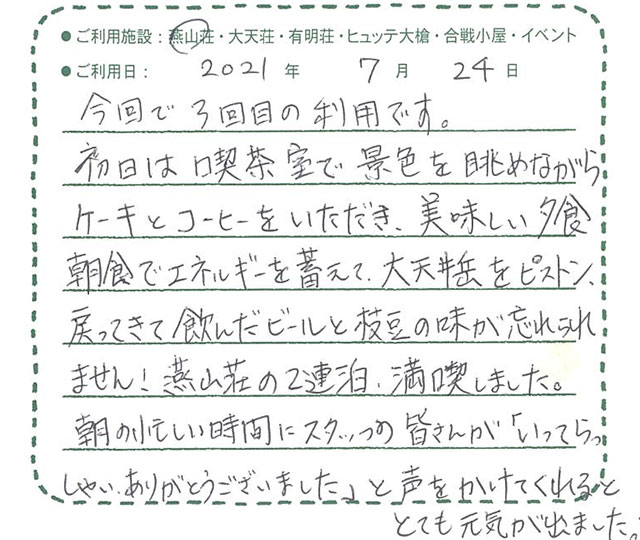 ●ご利用施設：燕山荘・大天荘・有明荘・ヒュッテ大槍・合戦小屋・イベント
●ご利用日： 2021 年 7 月 24 日
今回で3回目の利用です。
初日は喫茶室で景色を眺めながら
ケーキとコーヒーをいただき、美味しい夕食
朝食でエネルギーを蓄えて、大天井岳をピストン、
戻ってきて飲んだビールと枝豆の味が忘れられ
ません！燕山荘の2連泊、満喫しました。
朝の忙しい時間にスタッフの皆さんが「いってらっ
しゃい、ありがとうございました」と声をかけてくれると
とても元気が出ました。